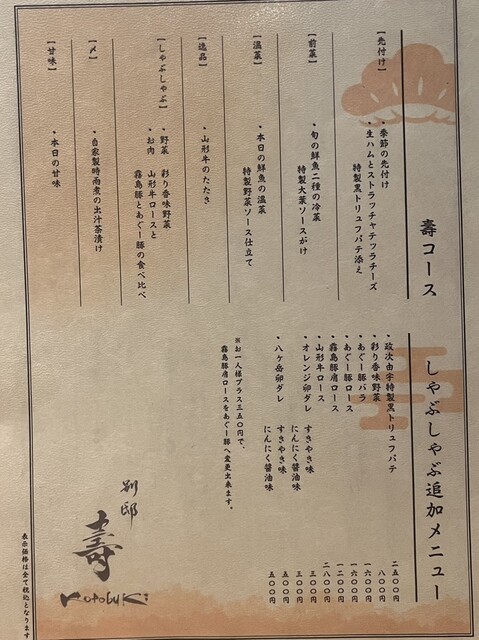 壽コース
【先付け】
・季節の先付け
・生ハムとストラッチャテッラチーズ
特製黒トリュフパテ添え
【前菜】
・旬の鮮魚二種の冷菜
特製大葉ソースがけ
【温菜】
・本日の鮮魚の温菜
特製野菜ソース仕立て
【逸品】
・山形牛のたたき
【しゃぶしゃぶ】
・野菜 彩り香味野菜
・お肉 山形牛ロースと
霧島豚とあぐー豚の食べ比べ
【〆】
・自家製時雨煮の出汁茶漬け
【甘味】
・本日の甘味
しゃぶしゃぶ追加メニュー
・政次由宇特製黒トリュフパテ 二五〇〇円
・彩り香味野菜 八〇〇円
・あぐー豚バラ 一六〇〇円
・あぐー豚ロース 一六〇〇円
・霧島豚肩ロース 一二〇〇円
・山形牛ロース 二八〇〇円
・オレンジ卵ダレ すきやき味 三〇〇円
にんにく醤油味 三〇〇円
・八ヶ岳卵ダレ すきやき味 五〇〇円
にんにく醤油味 五〇〇円
※お一人様プラス三五〇円で、
霧島豚肩ロースをあぐー豚へ変更出来ます。
別邸
壽
Kotobuki
表示価格は全て税込となります